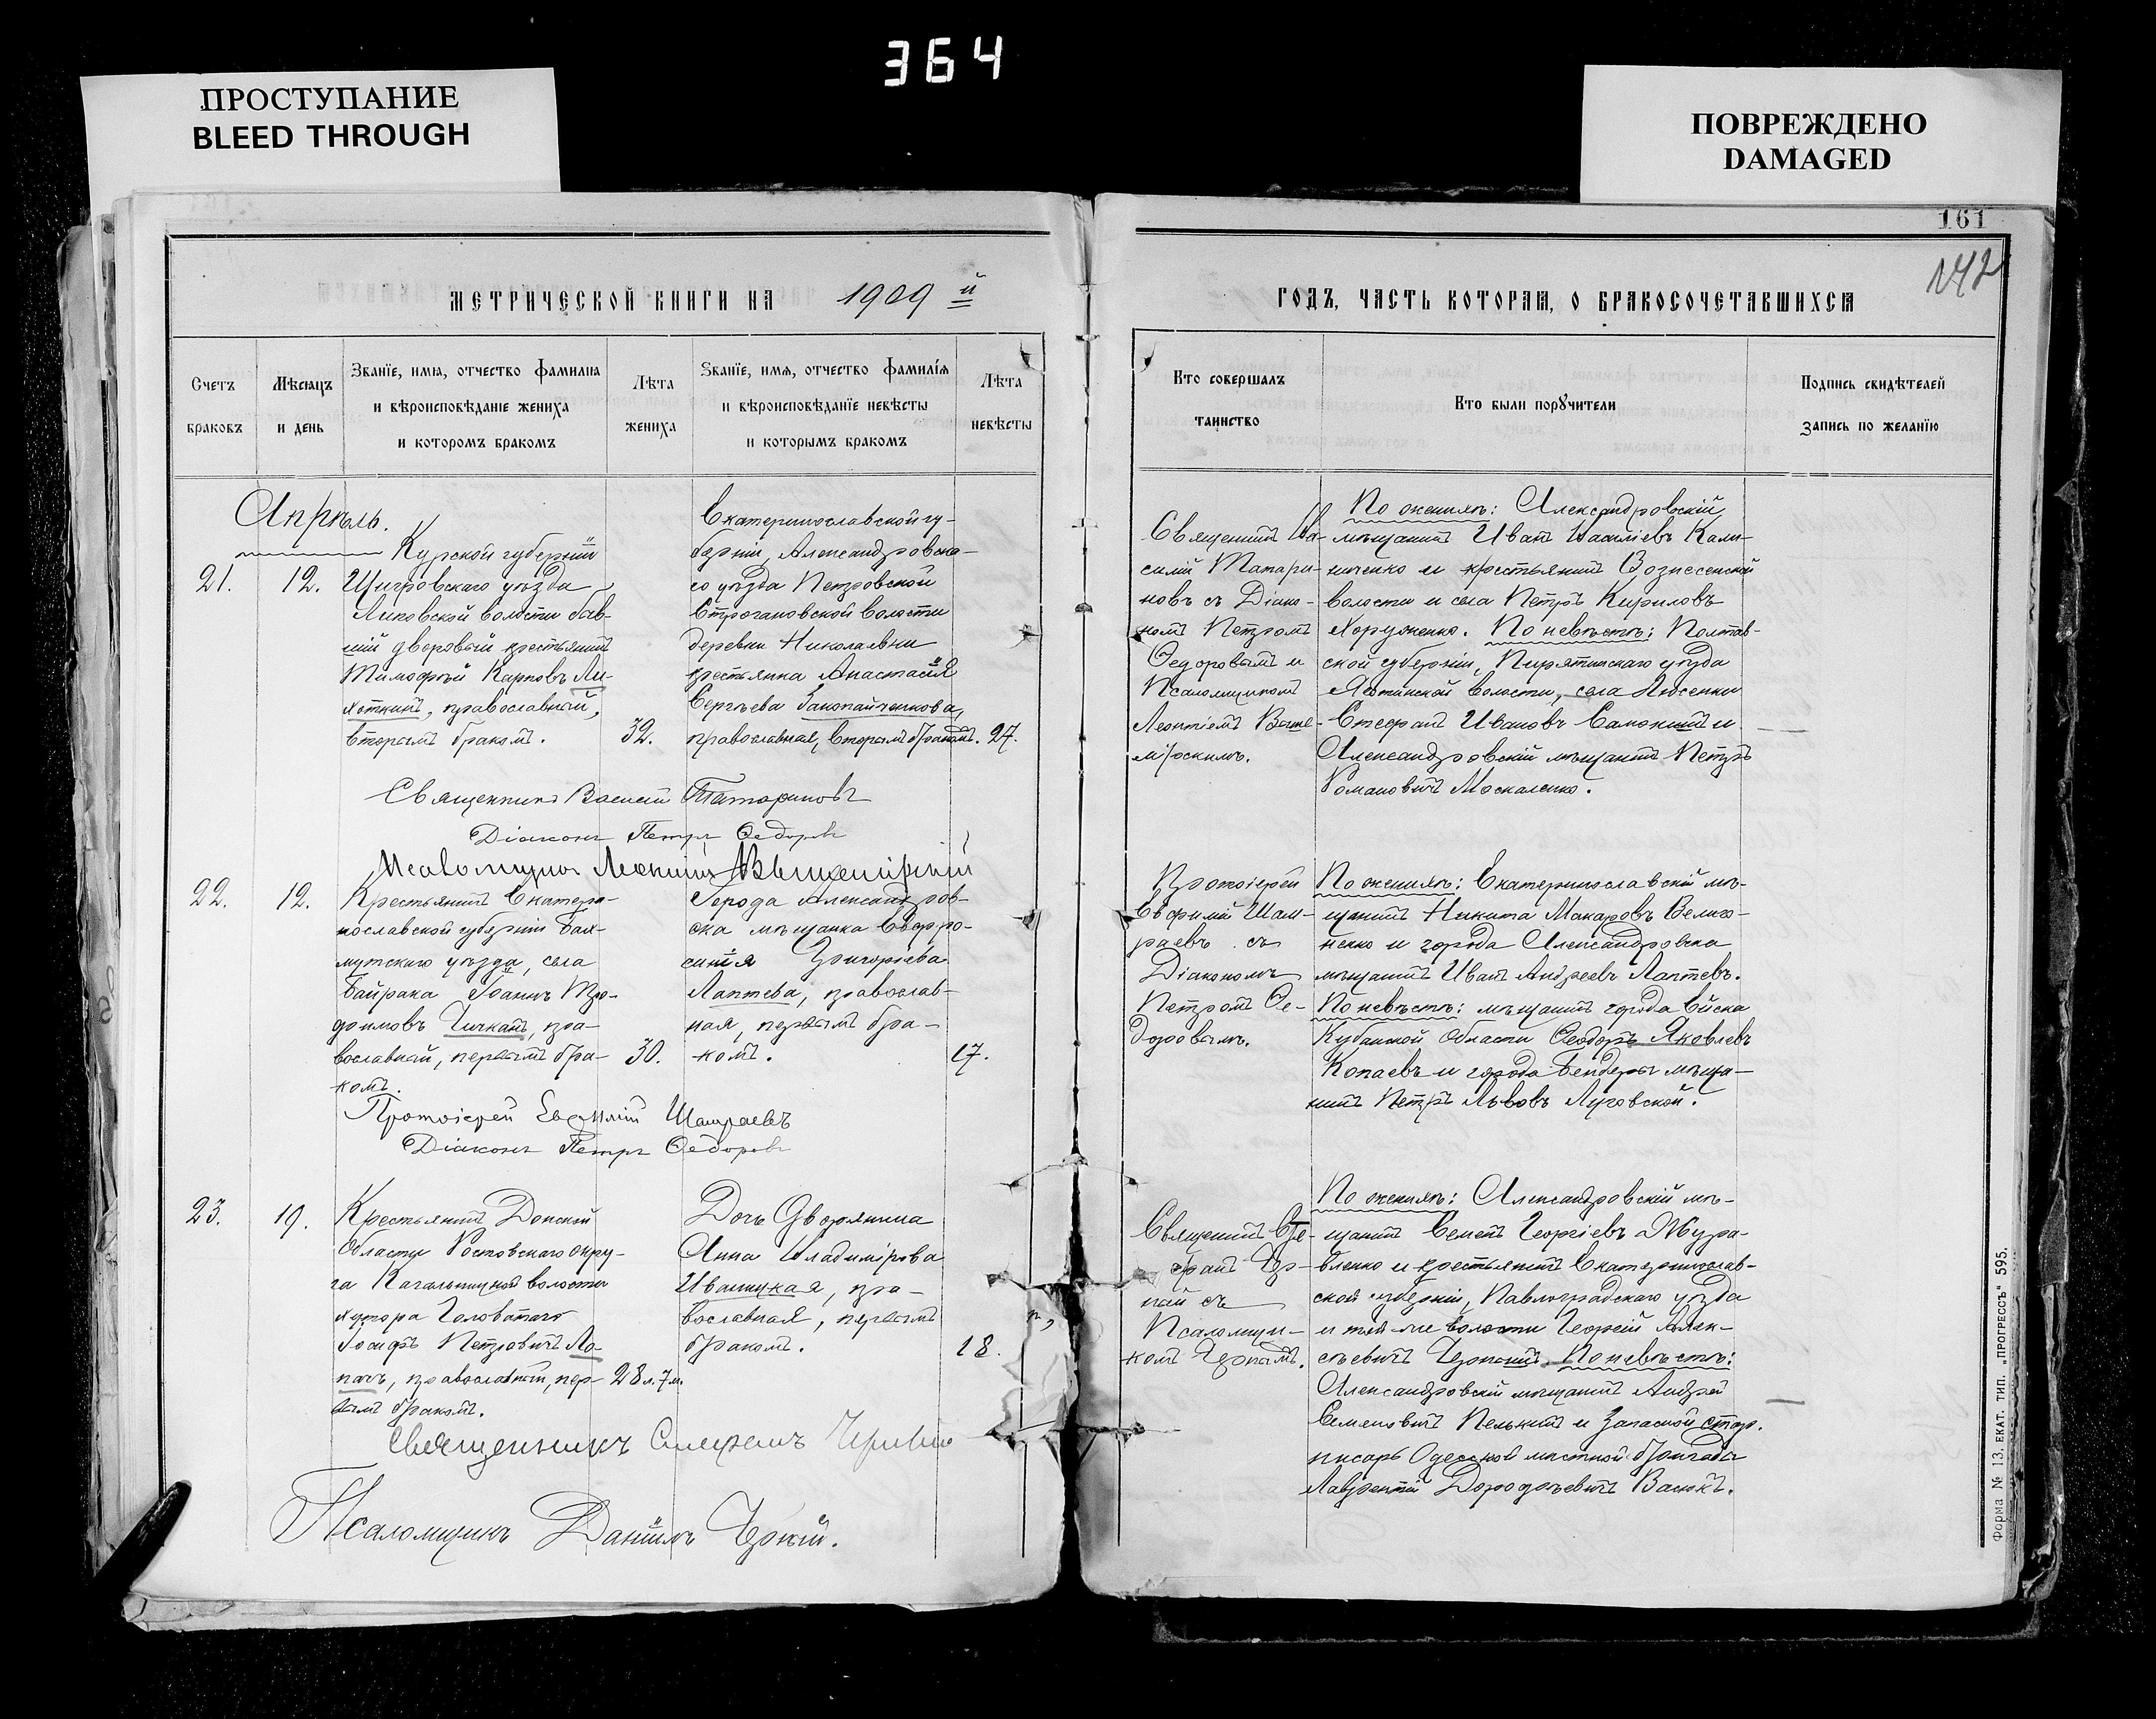 364
ПРОСТУПАНИЕ
BLEED THROUGH
ПОВРЕЖДЕНО
DAMAGED
161
142
МЕТРИЧЕСКОЙ КНИГИ НА 1909 й
Счетъ
браковъ
Мѣсяцъ
и день
Званіе, имя, отчество фамилия
и вѣроисповѣданіе жениха
и которомъ бракомъ
Лѣта
жениха
Званіе, имя, отчество фамилія
и вѣроисповѣданіе невѣсты
и которымъ бракомъ
Лѣта
невѣсты
Апрѣль.
21.
12.
Курской губерніи
Щигровскаго уѣзда
Липовской волости быв-
шій дворовый крестьянинъ
Тимофей Карповъ Ли-
хоткинъ, православный,
вторымъ бракомъ.
32.
Екатеринославской гу-
берніи, Александровска-
го уѣзда Петровской
Строгановской волости
деревни Николаевки
крестьянка Анастасія
Сергѣева Закопайченкова,
православная, вторымъ бракомъ.
27.
Священникъ Василій Татариновъ
Діаконъ Петръ Ѳедоровъ
Псаломщикъ Леонтій Вышемірскій
22.
12.
Крестьянинъ Екатери-
нославской губерніи Бах-
мутскаго уѣзда, села
Байрака Іоаннъ Тро-
фимовъ Чичканъ, пра-
вославный, первымъ бра-
комъ.
30.
Города Александров-
ска мѣщанка Евфро-
синія Григоріева
Лаптева, православ-
ная, первымъ бра-
комъ.
17.
Протоіерей Евфимій Шамраевъ
Діаконъ Петръ Ѳедоровъ
23.
19.
Крестьянинъ Донской
Области Ростовскаго окру-
га Кагальницкой волости
хутора Головатаго
Іосифъ Петровичъ Ло-
пачъ, православный, пер-
вымъ бракомъ.
28 л. 7 м.
Дочь Дворянина
Анна Владимірова
Иваницкая, пра-
вославная, первымъ
бракомъ.
18.
Священникъ Стефанъ
Псаломщикъ Даніилъ Чернай.
ГОДЪ, ЧАСТЬ КОТОРАЯ, О БРАКОСОЧЕТАВШИХСЯ
Кто совершалъ
таинство
Кто были поручители
Подпись свидѣтелей
запись по желанію
Священникъ Ва-
силій Татари-
новъ съ Діако-
номъ Петромъ
Ѳедоровымъ и
Псаломщикомъ
Леонтіемъ Выше-
мірскимъ.
По женихѣ: Александровскій
мѣщанинъ Иванъ Василіевъ Кали-
ниченко и крестьянинъ Вознесенской
волости и села Петръ Кириловъ
Хоруженко. По невѣстѣ: Полтав-
ской губерніи, Пирятинскаго уѣзда
Яготинской волости, села Лисенки
Стефанъ Ивановъ и
Александровскій мѣщанинъ Петръ
Романовичъ Москаленко.
Протоіерей
Евфимій Шам-
раевъ съ
Діакономъ
Петромъ Ѳе-
доровымъ.
По женихѣ: Екатеринославскій мѣ-
щанинъ Никита Макаровъ Велич-
ненко и города Александровска
мѣщанинъ Иванъ Андреевъ Лаптевъ.
По невѣстѣ: мѣщанинъ города Ейска
Кубанской Области Ѳеодоръ Яковлевъ
Копаевъ и города Бендеры мѣща-
нинъ Петръ Львовъ Луговской.
Священникъ Сте-
фанъ Чер-
най съ
Псаломщи-
комъ Чернымъ.
По женихѣ: Александровскій мѣ-
щанинъ Семенъ Георгіевъ Жура-
вленко и крестьянинъ Екатеринослав-
ской губерніи, Павлоградскаго уѣзда
и той-же волости Георгій Алек-
сѣевичъ По невѣстѣ:
Александровскій мѣщанинъ Андрей
Семеновичъ и Запасной стар.
писарь Одесской мѣстной бригады
Лаврентій Дорофеевичъ Васюкъ.
Форма № 13. ЕКАТ. ТИП. „ПРОГРЕССЪ" 595.